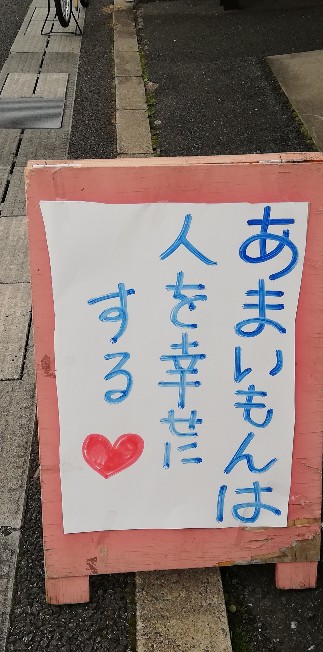 あまいもんは
人を幸せに
する